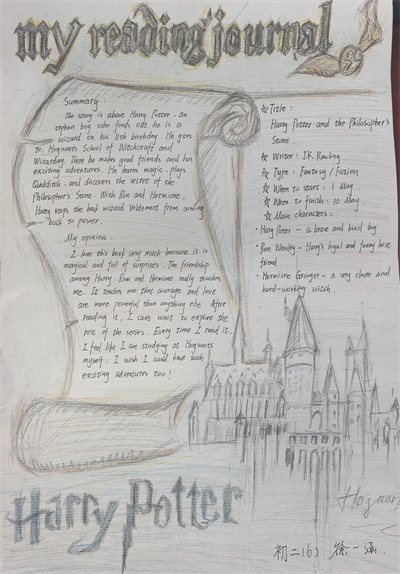 my reading journal
Summary:
The story is about Harry Potter, an
orphan boy who finds out he is a
wizard on his 11th birthday. He goes
to Hogwarts School of Witchcraft and
Wizardry. There he makes good friends and has
exciting adventures. He learns magic, plays
Quidditch, and discovers the secret of the
Philosopher's Stone. With Ron and Hermione,
Harry stops the bad wizard Voldemort from coming
back to power.
My opinion:
I love this book very much because it is
magical and full of surprises. The friendship
among Harry, Ron and Hermione really touches
me. It teaches me that courage and love
are more powerful than anything else. After
reading it, I can't wait to explore the
rest of the series. Every time I read it,
I feel like I am studying at Hogwarts
myself. I wish I could have such
exciting adventures too!
☆ Title:
Harry Potter and the Philosopher's
Stone
☆ Writer: J.K. Rowling
☆ Type: Fantasy / Fiction
☆ When to start: 1 May
☆ When to finish: 10 May
☆ Main characters:
· Harry Potter – a brave and kind boy
· Ron Weasley – Harry's loyal and funny best
friend
· Hermione Granger – a very clever and
hard-working witch
Harry Potter
Hogwar
初二(6) 徐一涵